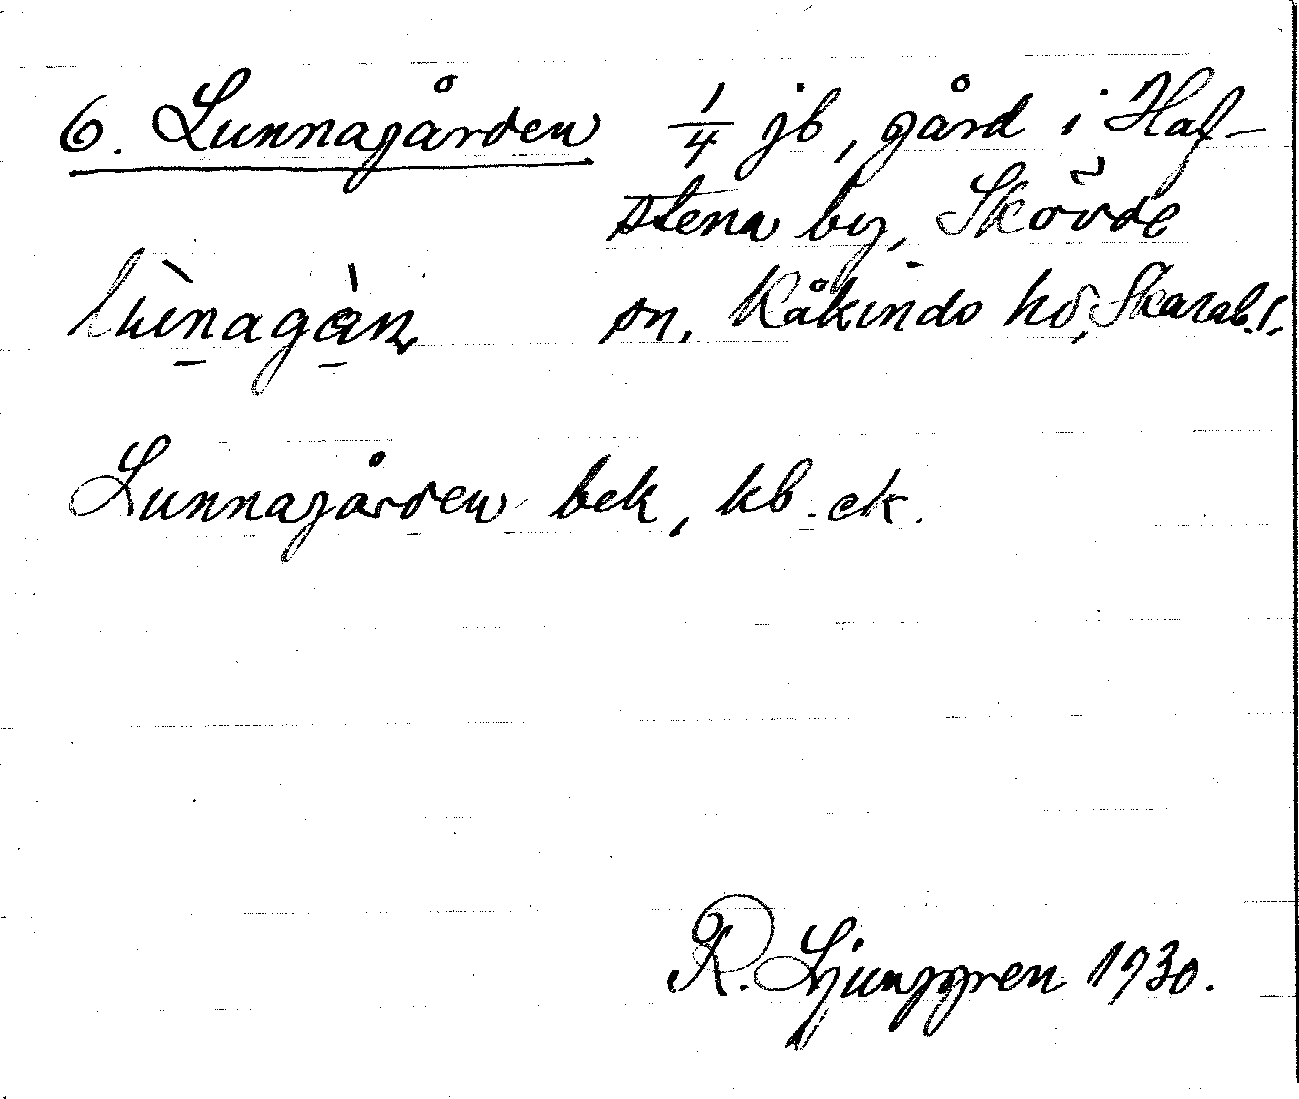 6. Lunnagården 1/4 jb, gård i Haf-
stena by, Skövde
sn, Kåkinds hd, Skarab. l.
Lunnagården bek, kb. ck.
R. Ljunggren 1930.